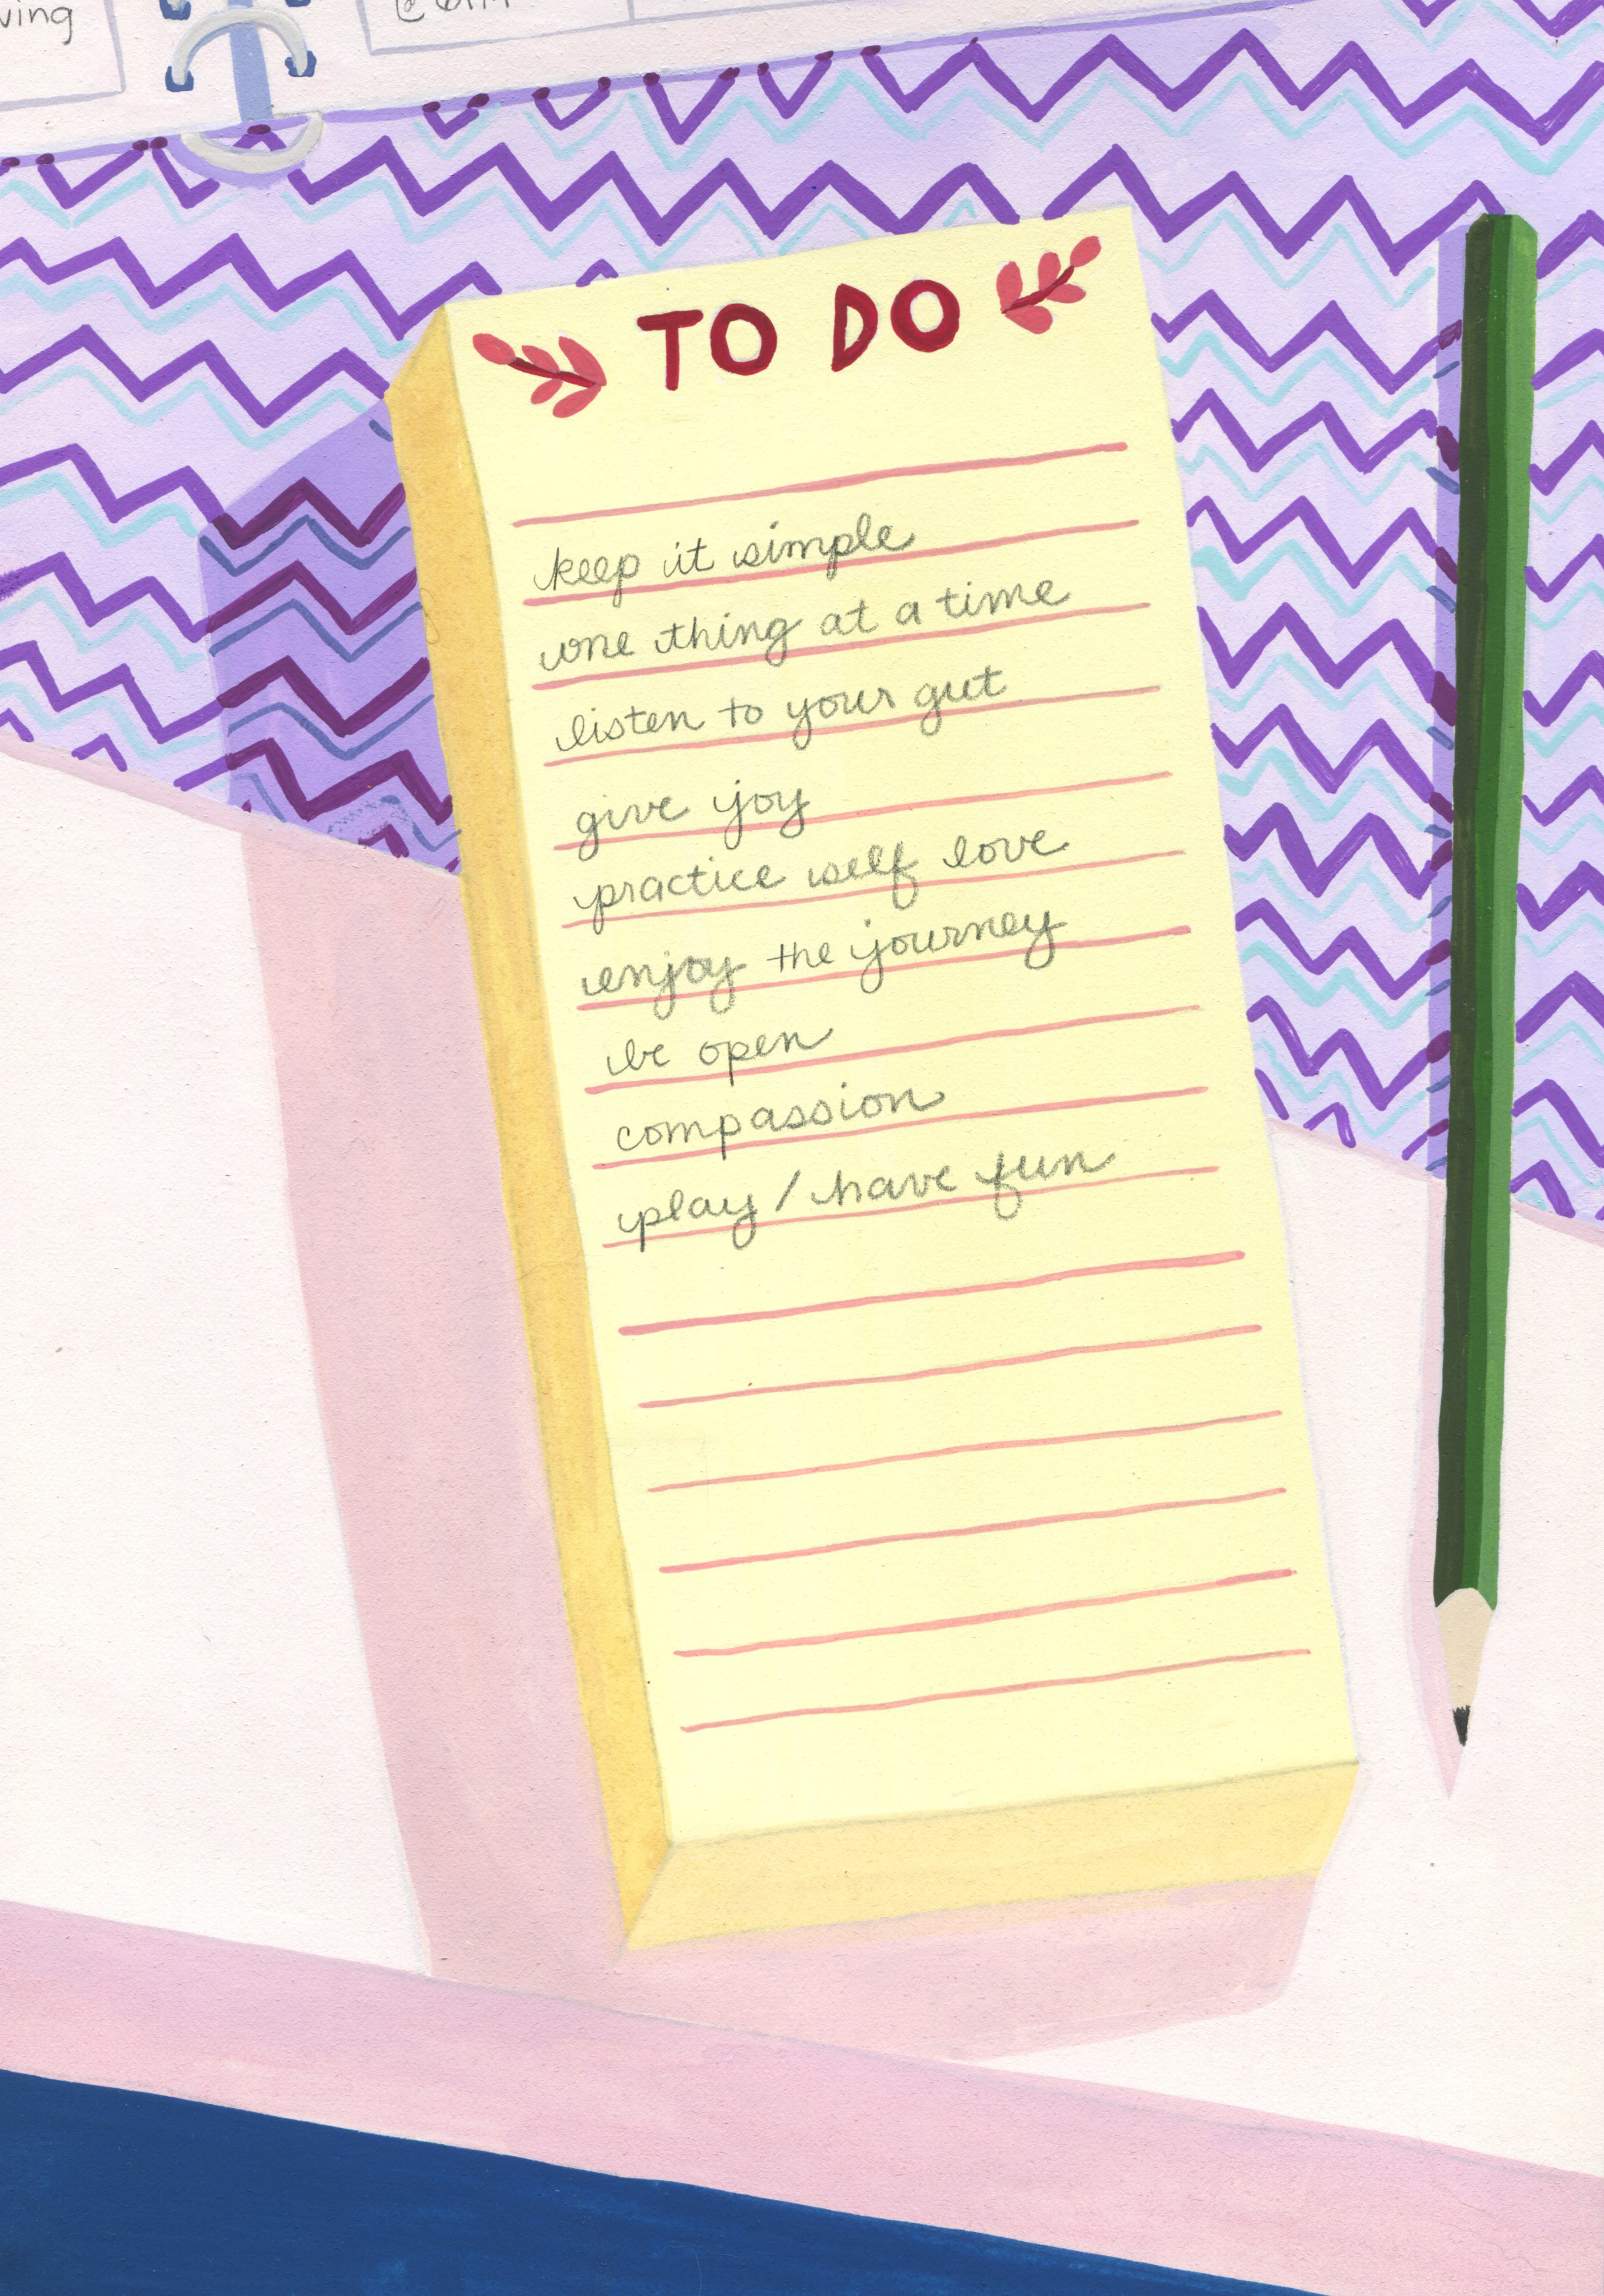 TO DO
keep it simple
one thing at a time
listen to your gut
give joy
practice self love
enjoy the journey
be open
compassion
play / have fun